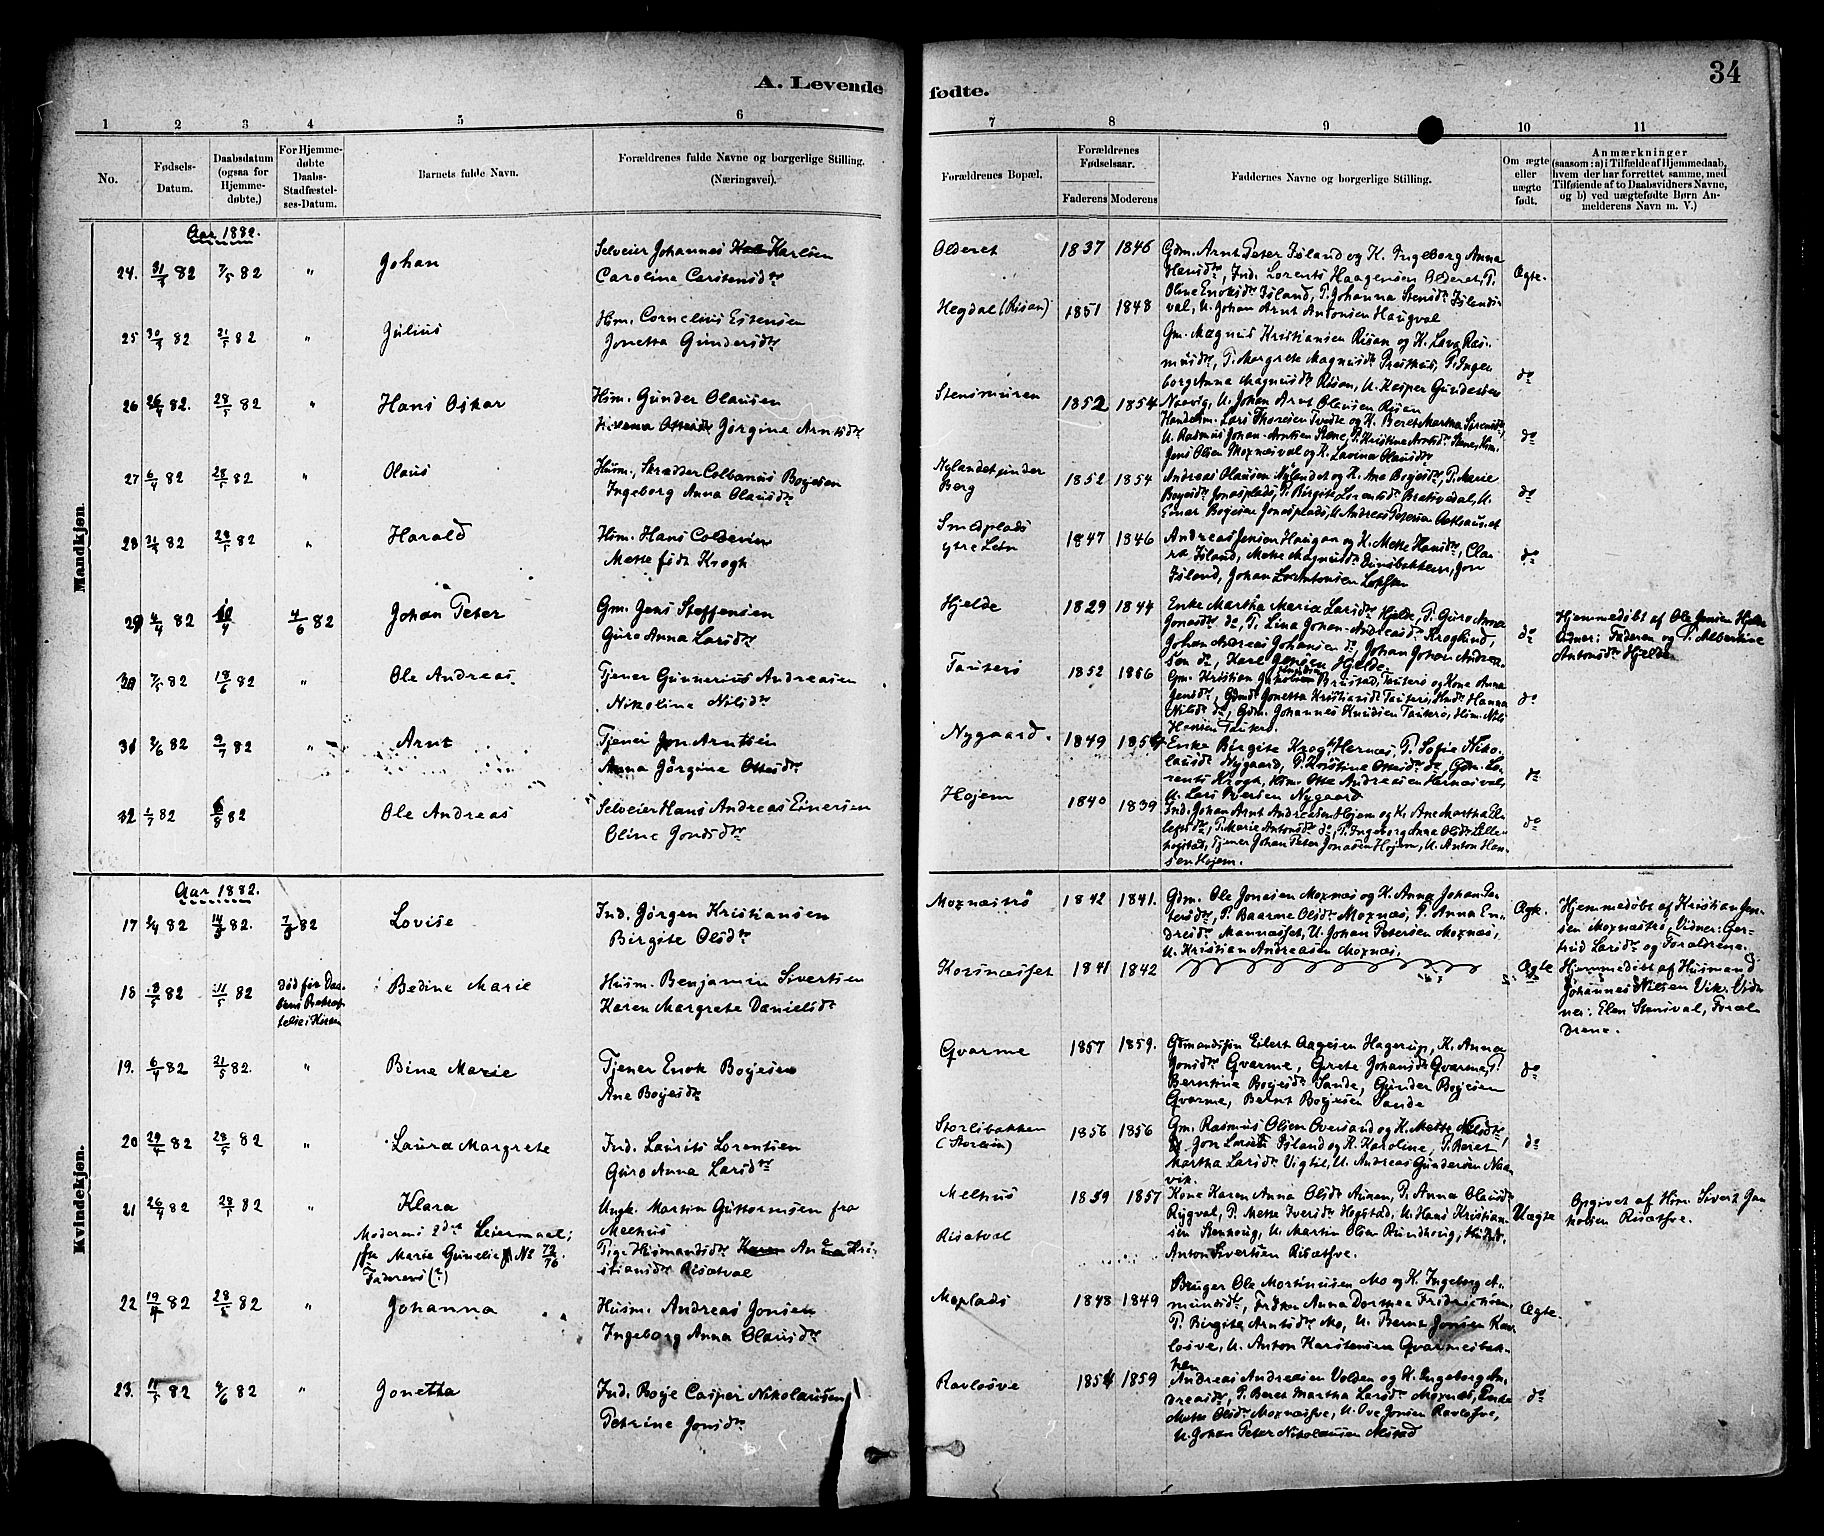 A. Levende
fødte.
34
1 2 3 4 5 6
7 8 9 10 11
No.
Fødsels-
Datum.
Daabsdatum
(ogsaa for
Hjemme-
døbte.)
For Hjemme-
døbte
Daabs-
Stadfæstel-
ses-Datum.
Barnets fulde Navn.
Forældrenes fulde Navne og borgerlige Stilling.
(Næringsvei).
Forældrenes Bopæl.
Forældrenes
Fødselsaar.
Faderens Moderens
Faddernes Navne og borgerlige Stilling.
Om ægte
eller
uægte
født.
Anmærkninger
(saasom: a) i Tilfælde af Hjemmedaab,
hvem der har forrettet samme, med
Tilføiende af to Daabsvidners Navne,
og b) ved uægtefødte Børn An-
melderens Navn m. V.)
Mandkjøn.
Aar 1882.
24. 31/3 82 7/5 82 " Johan
Selveier Johannes Karlsen
Carolina Carstensdtr
Olderet 1837 1846
Gdm. Arnt Peter Øsland og K. Ingeborg Anna
Hansdtr, Ind. Lorents Haagensen Olderet, P.
Oline Enoksdtr Øsland, P. Johanna Stensdtr
val, U. Johan Arnt Antonsen Haugval
Ægte.
25 30/3 82 21/5 82 " Julius
Hm. Cornelius Estensen
Jonetta Gundersdtr
Hegdal (Risan) 1851 1848
Gm. Magnus Kristiansen Risan og K. Ras-
musdtr, P. Margrete Magnusdtr Presthus, P. Inge-
borg Anna Magnusdtr Risan, U. Kasper Gundersen
Naavig, U. Johan Arnt Olausen Risan
do
26 26/4 82. 28/5 82 " Hans Oskar
Hsm. Gunder Olausen
Jørgine Arntsdtr
Stensmuren 1852 1854
Handelsm. Lars Thoresen Tvedte og K. Beret Martha Sørensdtr,
U. Rasmus Johan Arntsen Stene, P. Kristine Arntsdtr Stene, Hsm.
Jens Olsen Moxnæsval og K. Lavina Olausdtr
do
27 6/4 82 28/5 82 " Olaus
Husm. Skrædder Colbanus Bojesen
Ingeborg Anna Olausdtr
Nylandet under
Berg 1852 1854
Andreas Olausen Nylandet og K. Ane Bojesdtr, P. Marie
Bojesdtr Jonasplads, P. Birgite Lorentsdtr Bratisdal, U.
Einar Bojesen Jonasplads, U. Andreas Petersen
do
28 31/3 82 28/5 82 " Harald
Hsm. Hans
Mette født Krogh
Smedplads
ytre Lein 1847 1846
Andreas Jensen Haugan og K. Mette Hansdtr, Cla-
ra Øsland, Mette Magnusdtr Jon
Øsland, Johan Antonsen
do
29 4/4 82 10/4 4/6 82 Johan Peter
Gm. Jens Steffensen
Guro Anna Larsdtr
Hjelde 1829 1844
Enke Martha Maria Larsdtr Hjelde, P. Guro Anna
Jonasdtr do, P. Lina Johan-Andreasdtr Kroglund,
Johan Andreas Johansen do, Johan Johan Andrea-
sen do, Karl Jensen Hjelde
do
Hjemmedøbt af Ole Jensen Hjelde
Vidner: Faderen og P. Albertine
Antonsdtr Hjelde.
30 7/5 82 18/6 82 " Ole Andreas.
Tjener Gunnerius Andreasen
Nikolina Nilsdtr
Tauterø 1852 1856
Gm. Kristian Jakobsen Brustad, Tauterø og Kone Anna
Jensdtr, Gdmdtr Jonetta Kristiansdtr Tauterø, Hsdtr Hanna
Nilsdtr do, Gdm. Johannes Knudsen Tauterø, Hsm. Nils
Hansen Tauterø.
do
31 2/6 82 9/7 82 " Arnt
Tjener Jon Arntsen
Anna Jørgine Ottesdtr
Nygaard. 1849 1854
Enke Birgite Krogh Hernes, P. Sofie Niko-
lausdtr Nygaard, P. Kristine Ottesdtr do, Gdm. Lo-
rents Krogh, Hsm. Otte Andreasen Hernesval,
U. Lars Iversen Nygaard
do
32 1/7 82 6/8 82 Ole Andreas
Selveier Hans Andreas Einersen
Oline Jonsdtr
Hojem 1840 1839
Ind. Johan Arnt Andreasen Hojem og K. Ane Martha El-
lefsdtr, P. Marie Antonsdtr do, P. Ingeborg Anna Olsdtr Lille-
hogstad, Tjener Johan Peter Jonasen Hojem, U. Anton Han-
sen Hojem.
do
Kvindekjøn.
Aar 1882.
17 2/4 82 14/3 82. 7/3 82 Lovise
Ind. Jørgen Kristiansen
Birgite Olsdtr
Moxnæstrø 1842 1841.
Gdm. Ole Jonsen Moxnæs og K. Anna Johan Pe-
tersdtr, P. Baarme Olsdtr Moxnæs, P. Anna En-
dresdtr Mannæset, U. Johan Petersen Moxnæs,
U. Kristian Andreasen Moxnæs.
Ægte.
Hjemmedøbt af Kristian Jen-
sen Moxnæstrø, Vidner: Ger-
trud Larsdtr og Forældrene.
18 3/5 82 11/5 82 død før Daa-
bens Bekræf-
telse i Kirken
Bedine Marie
Husm. Benjamin Sivertsen
Karen Margrete Danielsdtr
Korsnæsset 1841 1842
Ægte
Hjemmedøbt af Husmand
Johannes Nilsen Vik. Vid-
ner: Elen Stensval, Foræl-
drene.
19. 6/4 82 21/5 82. " Bine Marie
Tjener Enok Bojesen
Ane Bojesdtr
Qvarme 1857 1859.
Gdmandssøn Eilert Aagesen Hagerup, K. Anna
Jonsdtr Qvarme, Grete Johansdtr Qvarme, P.
Berntina Bojesdtr Sande, Gunder Bojesen
Qvarme, Bernt Bojesen Sande
do
20 29/4 82 28/5 82 " Laura Margrete
Ind. Laurits Lorentsen
Guro Anna Larsdtr
Storlibakken
(Storlein) 1856 1856
Gm. Rasmus Olsen Oversand og K. Mette Nilsdtr,
Jon Larsen Øsland og K. Karoline, P. Beret
Martha Larsdtr Vigtil, U. Andreas Gundersen Naa-
vik.
do
21 26/4 82 28/5 82 " Klara
Moderens 2det Leiermaal;
fra Marie Gunelie No 72/76.
Faderens (?)
Ungk. Martin Guttormsen fra
Melhus
Pige Husmandsdtr Anna Kri-
stiansdtr Risætval
Melhus
Risætval 1859 1857
Kone Karen Anna Olsdtr Aunan, P. Anna Olausdtr
Rygval, P. Mette Iversdtr Hegstad, U. Hans Kristian-
sen Stenhoug, U. Martin Olsen Rundhoug,
Anton Sivertsen Risætsve.
Uægte
Opgivet af Hsm. Sivert Ja-
kobsen Risætsve.
22 19/4 82 28/5 82 " Johanna
Husm. Andreas Jonsen
Ingeborg Anna Olausdtr
Moplads 1848 1849
Bruger Ole Mortinusen Mo og K. Ingeborg A-
mundsdtr, Anna Dorthea Fridrichsen,
P. Birgite Arntsdtr Mo, U. Bernt Jonsen Rav-
losve, U. Anton Karstensen Qvarmesbak-
ken
Ægte.
23. 11/5 82 4/6 82 " Jonetta
Ind. Boje Casper Nikolausen
Petrine Jonsdtr
Ravlosve 1854 1859
Andreas Andreasen Volden og K. Ingeborg An-
dreasdtr, P. Beret Martha Larsdtr Moxnæs, Enke
Mette Olsdtr Moxnæsve, U. Ove Jonsen Ravlosve,
U. Johan Peter Nikolausen Alstad
do